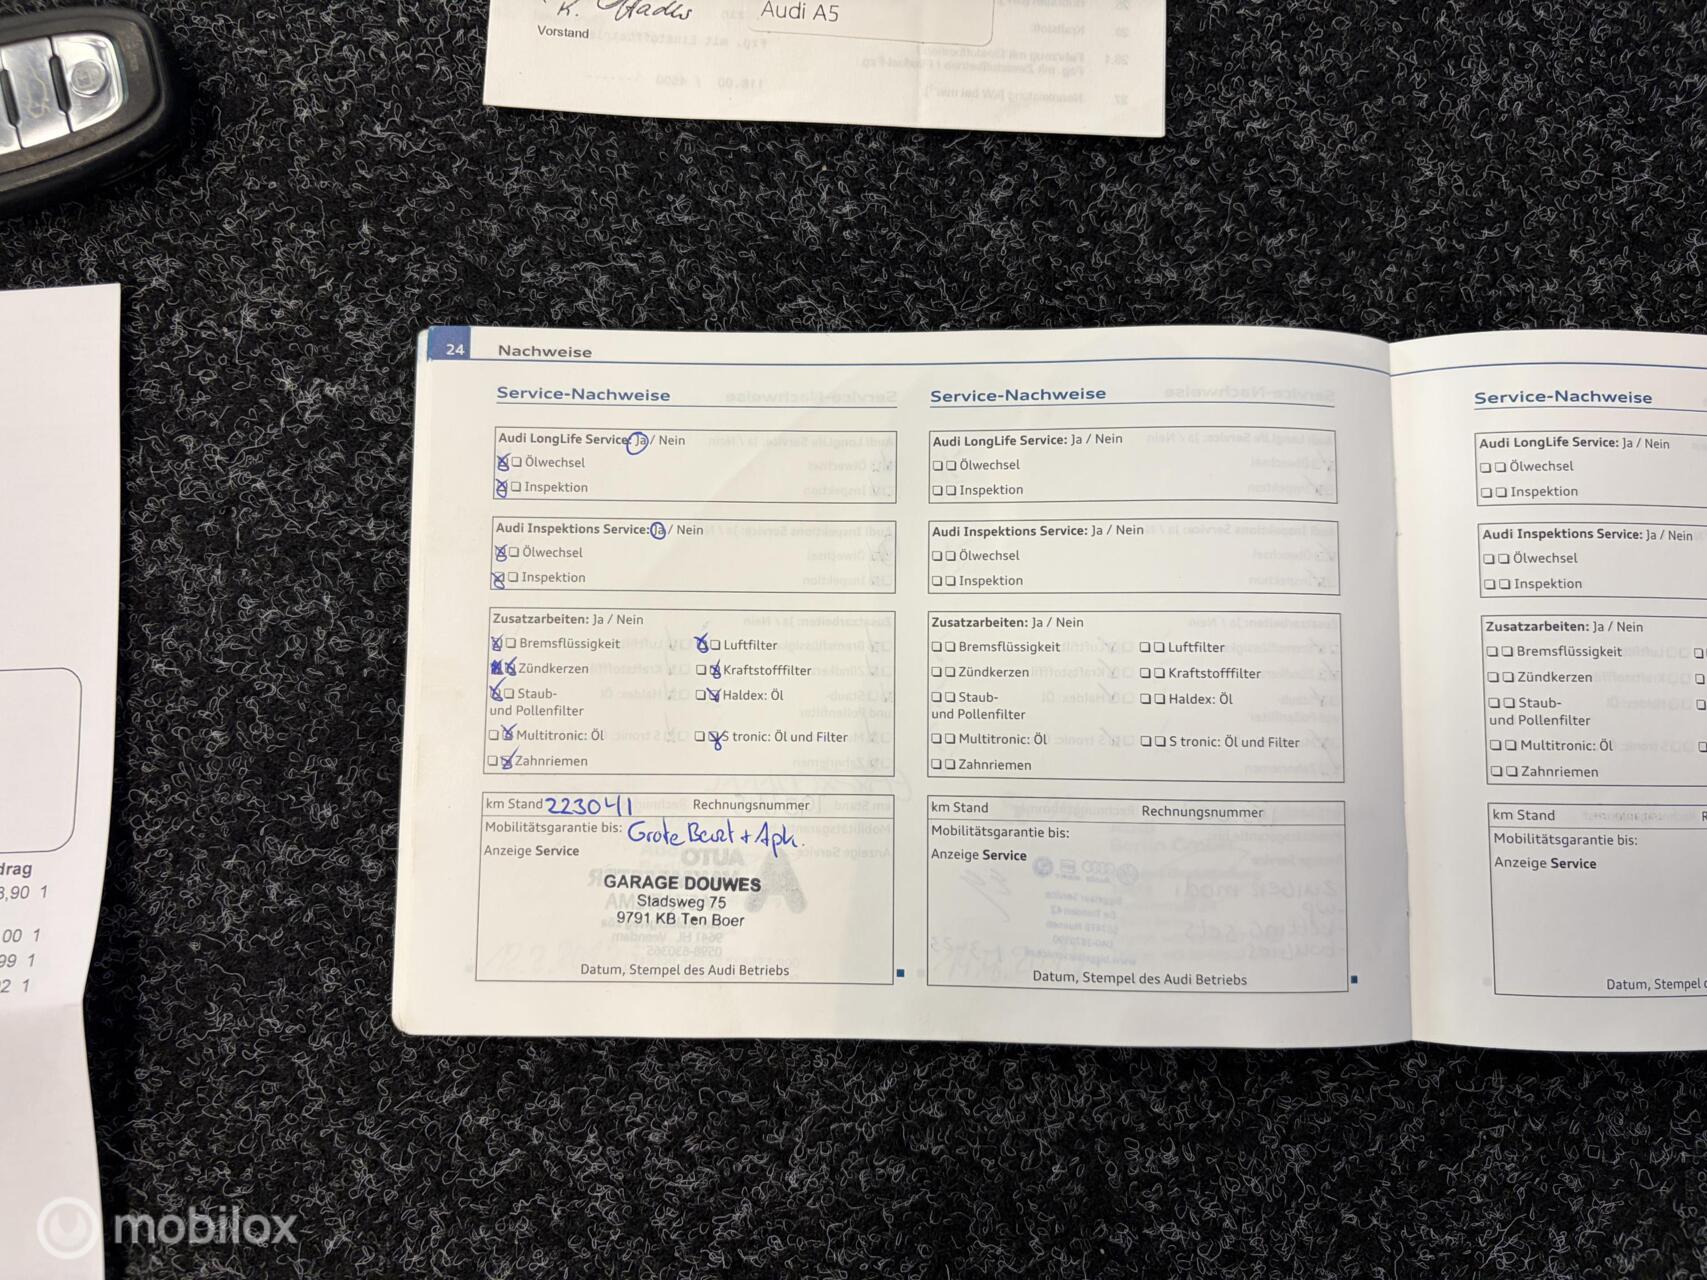 Vorstand
Audi A5
drag
3,90 1
00 1
99 1
2 1
24 Nachweise
Service-Nachweise
Audi LongLife Service: Ja / Nein
Ölwechsel
Inspektion
Audi Inspektions Service: Ja / Nein
Ölwechsel
Inspektion
Zusatzarbeiten: Ja / Nein
Bremsflüssigkeit Luftfilter
Zündkerzen Kraftstofffilter
Staub- Haldex: Öl
und Pollenfilter
Multitronic: Öl S tronic: Öl und Filter
Zahnriemen
km Stand 223041 Rechnungsnummer
Mobilitätsgarantie bis: Grote Beurt + Apk.
Anzeige Service
GARAGE DOUWES
Stadsweg 75
9791 KB Ten Boer
Datum, Stempel des Audi Betriebs
Service-Nachweise
Audi LongLife Service: Ja / Nein
Ölwechsel
Inspektion
Audi Inspektions Service: Ja / Nein
Ölwechsel
Inspektion
Zusatzarbeiten: Ja / Nein
Bremsflüssigkeit Luftfilter
Zündkerzen Kraftstofffilter
Staub- Haldex: Öl
und Pollenfilter
Multitronic: Öl S tronic: Öl und Filter
Zahnriemen
km Stand Rechnungsnummer
Mobilitätsgarantie bis:
Anzeige Service
Datum, Stempel des Audi Betriebs
Service-Nachweise
Audi LongLife Service: Ja / Nein
Ölwechsel
Inspektion
Audi Inspektions Service: Ja / Nein
Ölwechsel
Inspektion
Zusatzarbeiten: Ja / Nein
Bremsflüssigkeit
Zündkerzen
Staub-
und Pollenfilter
Multitronic: Öl
Zahnriemen
km Stand R
Mobilitätsgarantie bis:
Anzeige Service
Datum, Stempel d
mobilox